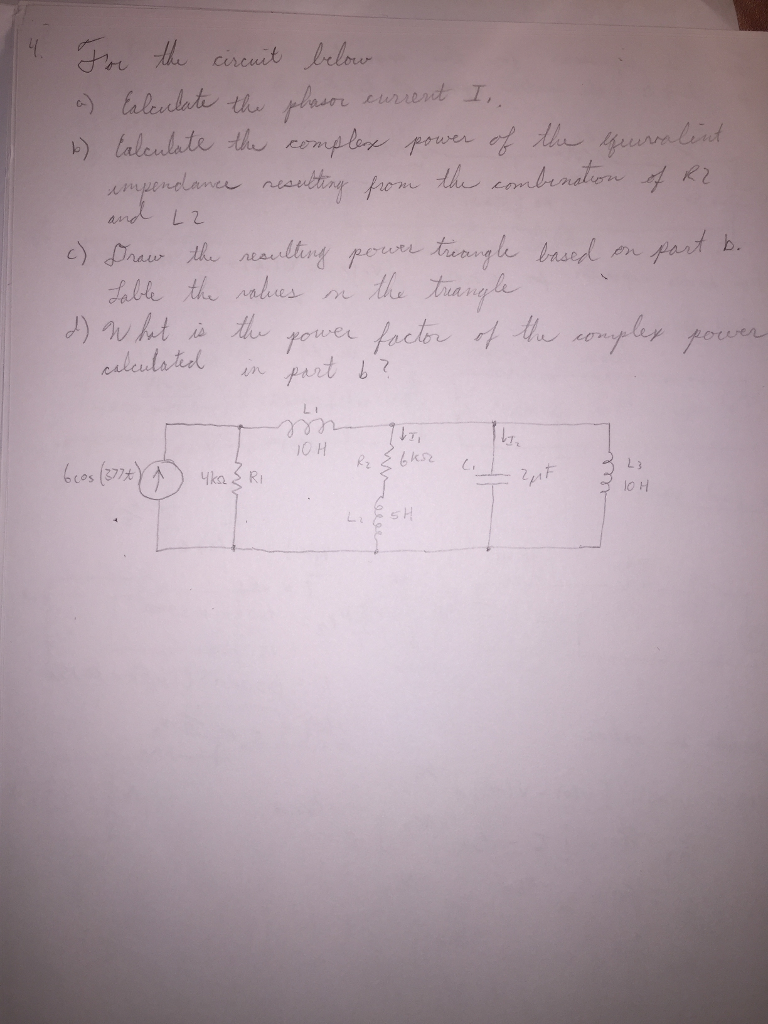 4. For the circuit below
a) Calculate the phasor current I1.
b) Calculate the complex power of the equivalent
impendance resulting from the combination of R2
and L2
c) Draw the resulting power triangle based on part b.
Lable the values on the triangle
d) What is the power factor of the complex power
calculated in part b?
L1
10 H
↓I1
↓I2
6cos(377t)
4kΩ
R1
R2
6kΩ
C1
2μF
L3
10 H
L2
5H